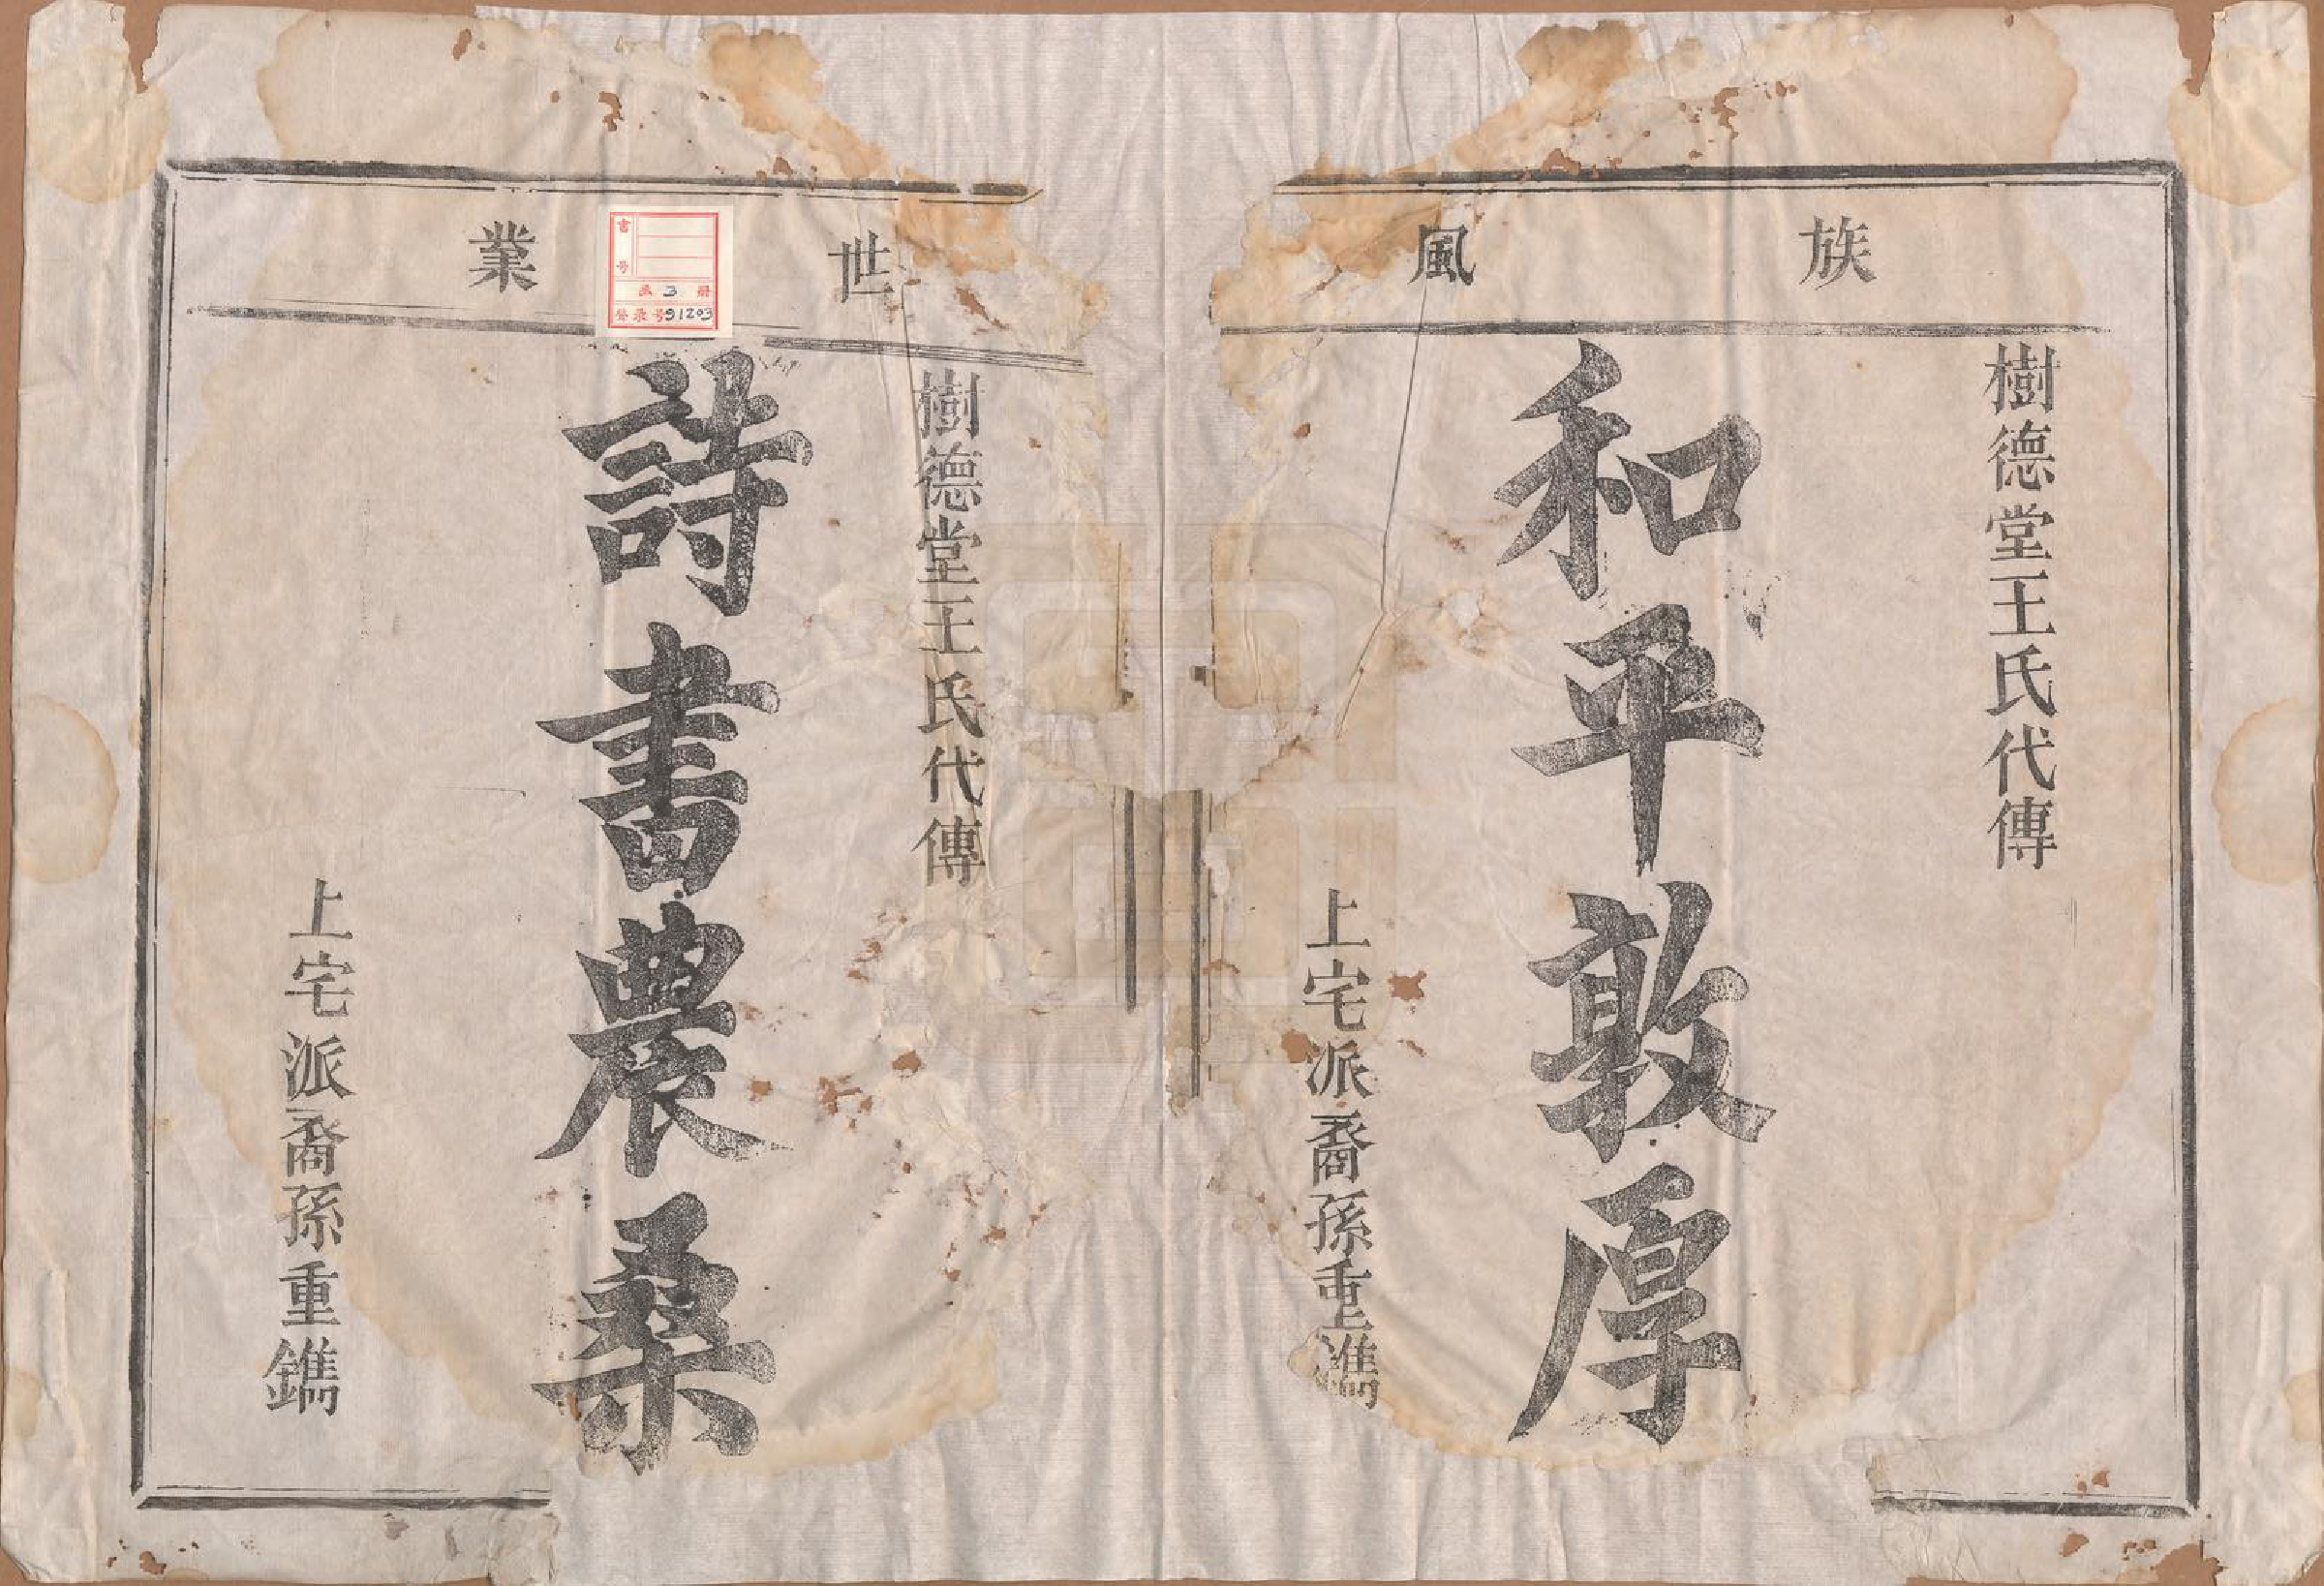 族風
樹德堂王氏代傳
和平敦厚
上宅派裔孫重鐫
世業
樹德堂王氏代傳
詩書農桑
上宅派裔孫重鐫
書号
函 3 册
登录号91203